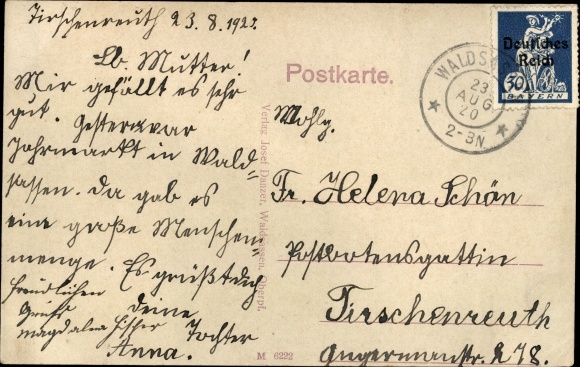 Tirschenreuth 23.8.192
Lb. Mutter!
Mir gefällt es sehr
gut. Gestern war
Jahrmarkt in Wald=
sassen. Da gab es
eine große Menschen
menge. Es grüßt dich
freundlichen
Gruß
deine
Tochter
Anna.
Postkarte.
Wohlg.
Fr. Helena Schön
Postbotensgattin
Tirschenreuth
278.
Verlag Josef Danzer, Waldsassen, Oberpf.
M 6222
WALDSA
23
AUG
20
2-3N
Deutsches
Reich
30
BAYERN